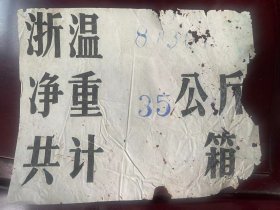 浙温
净重 35 公斤
共计 箱